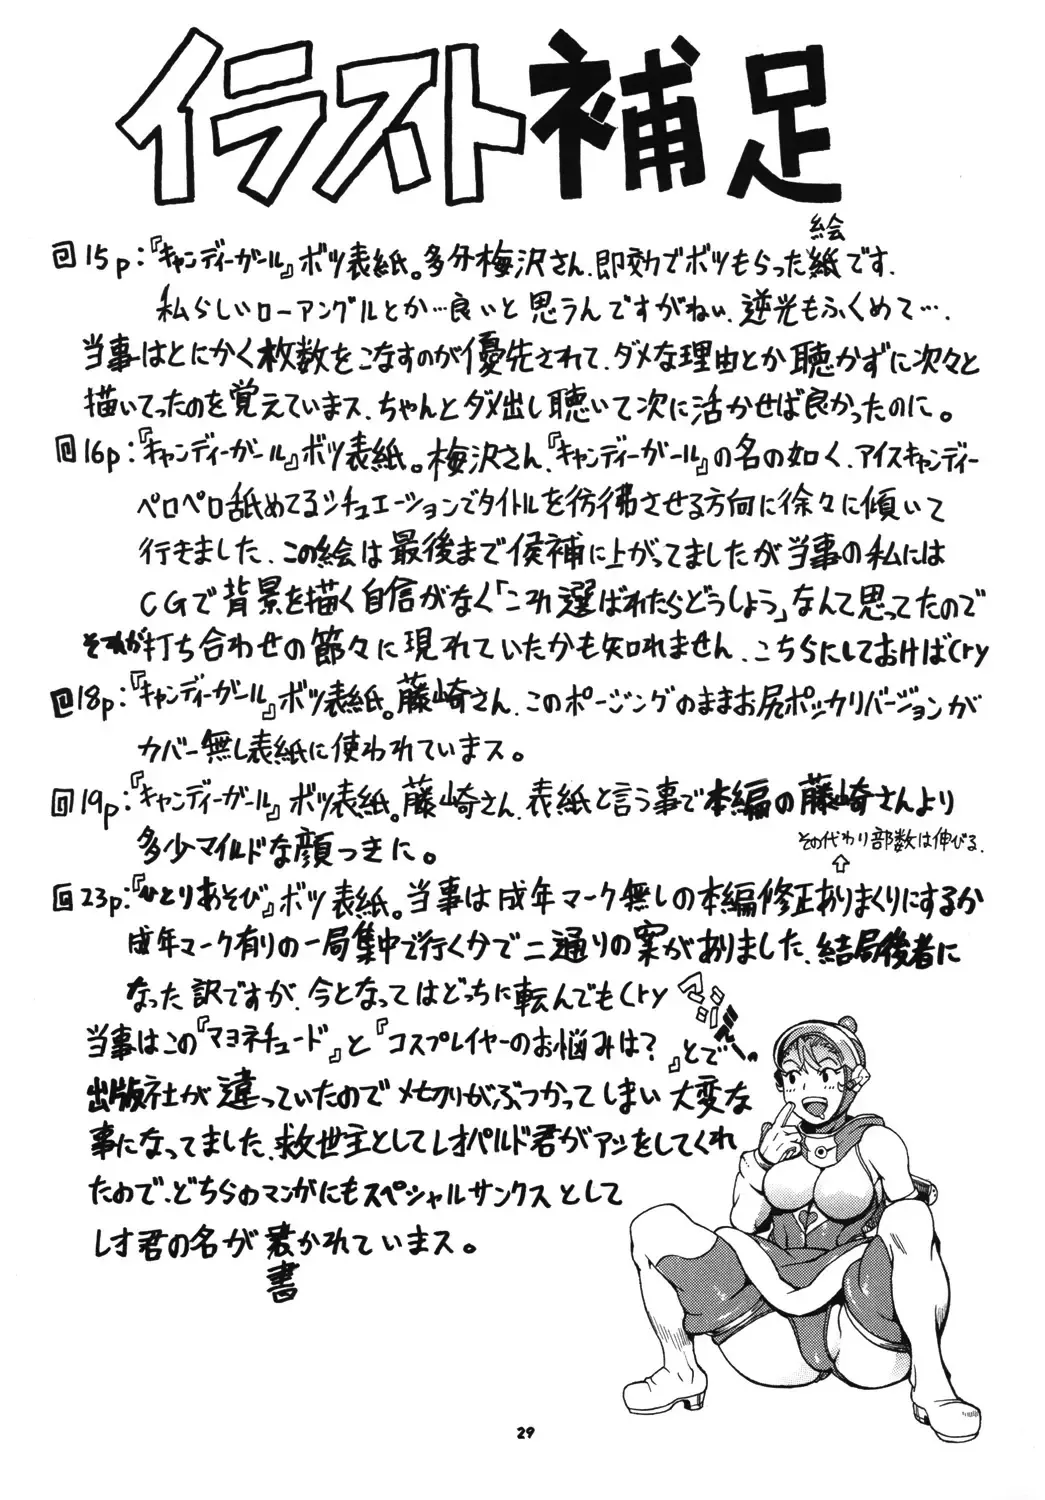 イラスト補足
回15p:『キャンディーガール』ボツ表紙。多分梅沢さん、即効でボツもらった絵です。
私らしいローアングルとか…良いと思うんですがねぃ、逆光もふくめて…、
当事はとにかく枚数をこなすのが優先されて、ダメな理由とか聴かずに次々と
描いてったのを覚えていまス、ちゃんとダメ出し聴いて次に活かせば良かったのに。
回16p:『キャンディーガール』ボツ表紙。梅沢さん、『キャンディーガール』の名の如く、アイスキャンディー
ペロペロ舐めてるシチュエーションでタイトルを彷彿させる方向に徐々に傾いて
行きました、この絵は最後まで候補に上がってましたが当事の私には
CGで背景を描く自信がなく「これ選ばれたらどうしよう」なんて思ってたので
それが打ち合わせの節々に現れていたかも知れません、こちらにしておけばCry
回18p:『キャンディーガール』ボツ表紙。藤崎さん、このポージングのままお尻ポッカリバージョンが
カバー無し表紙に使われていまス。
回19p:『キャンディーガール』ボツ表紙。藤崎さん、表紙と言う事で本編の藤崎さんより
多少マイルドな顔つきに。
その代わり部数は伸びる。
⇧
回23p:『ひとりあそび』ボツ表紙。当事は成年マーク無しの本編修正ありまくりにするか
成年マーク有りの一局集中で行くかで二通りの案がありました、結局後者に
なった訳ですが、今となってはどっちに転んでもCry
マジでー。
当事はこの『マヨネチュード』と『コスプレイヤーのお悩みは?』とで
出版社が違っていたのでメ切りがぶつかってしまい大変な
事になってました、救世主としてレオパルド君がアシをしてくれ
たので、どちらのマンガにもスペシャルサンクスとして
レオ君の名が書かれていまス。
29